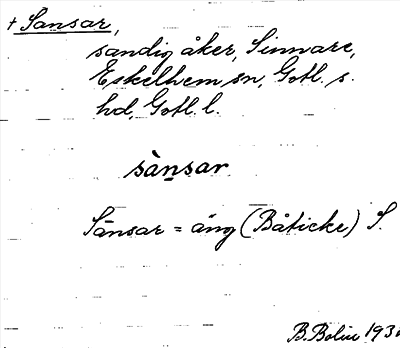 + Sansar,
sandig åker, Sinnare,
Eskelhem sn, Gotl. s.
hd, Gotl. l.
sànsar
Sānsar = äng (Båticke) S.
B. Bolin